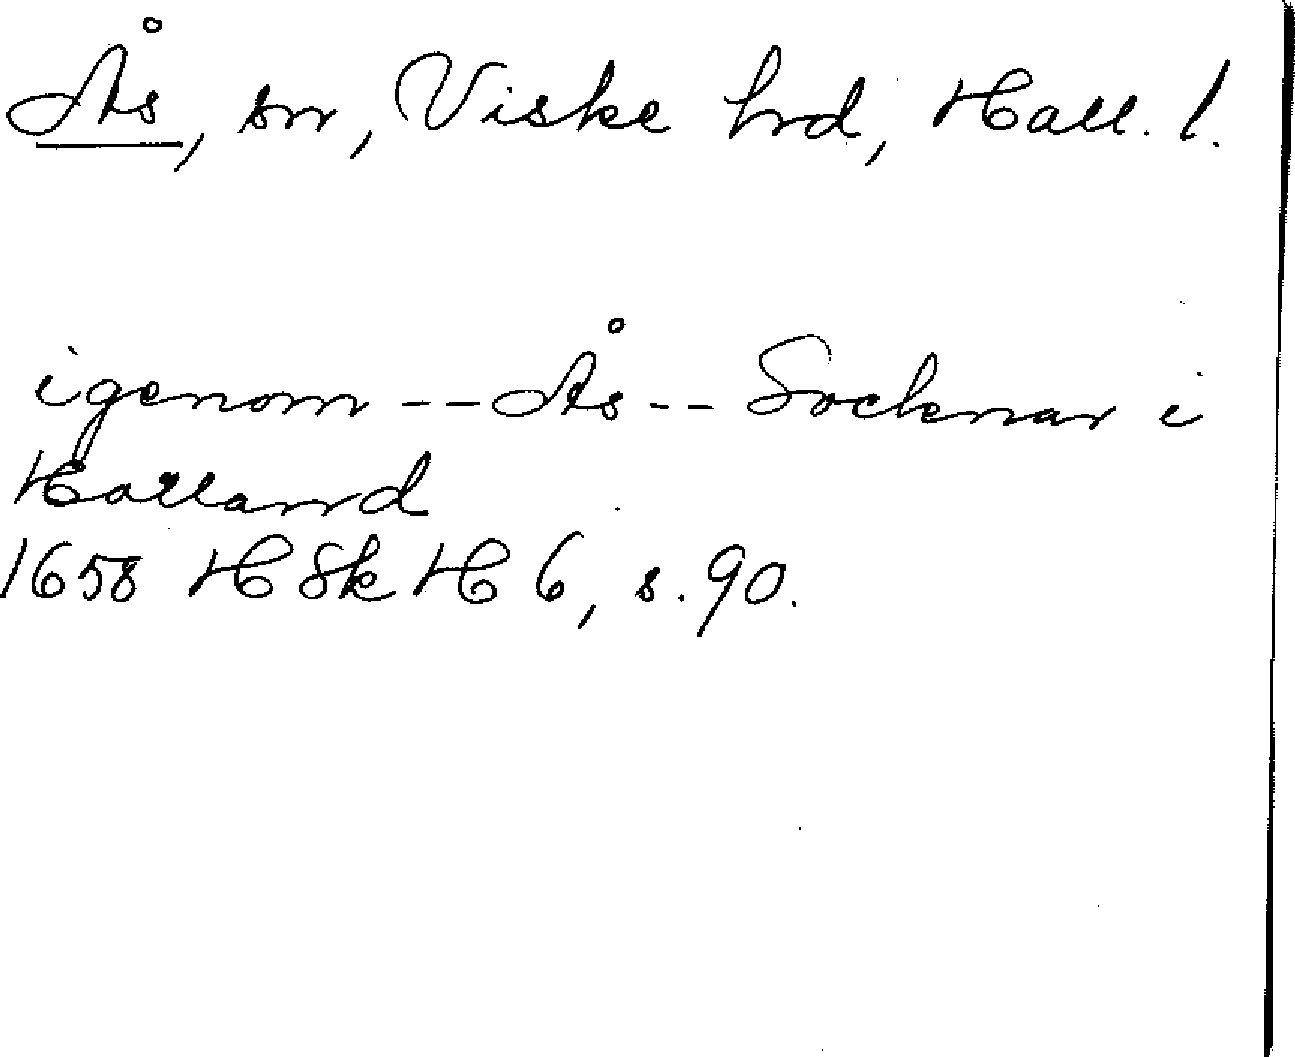 Ås, sn, Viske hrd, Hall. l.
igenom -- Ås -- Socknar i
Halland
1658 HSkH 6, s. 90.